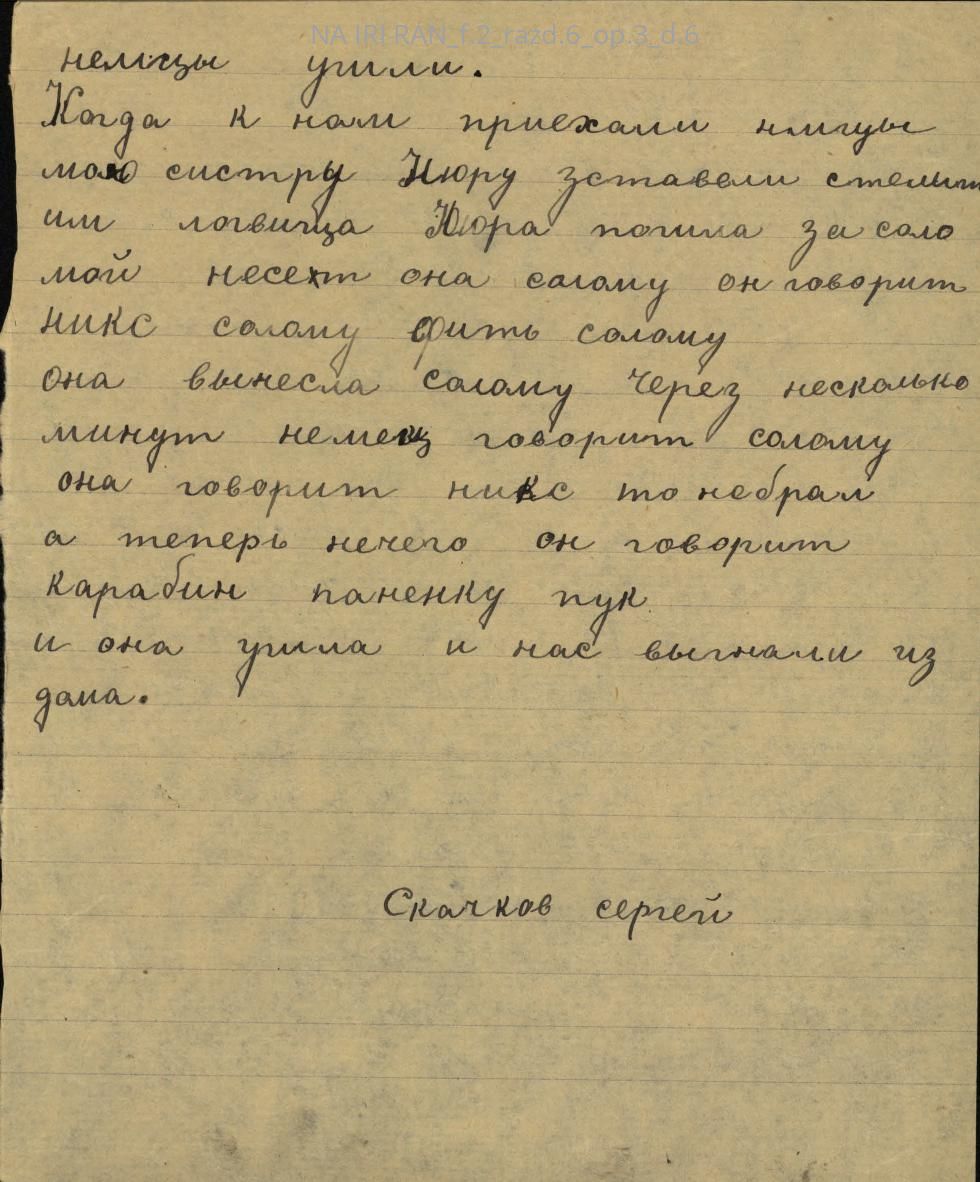 NA IRI RAN_f.2_razd.6_op.3_d.6
немцы ушли.
Когда к нам приехали нмцы
мою систру Нюру зставели стелит
им логвища Нюра пошла за соло
мой несехт она солому он говорит
никс солому фить солому
она вынесла солому через несколько
минут немец говорит солому
она говорит никс то небрал
а теперь нечего он говорит
карабин паненку пук
и она ушла и нас выгнали из
дома.
Скачков сергей